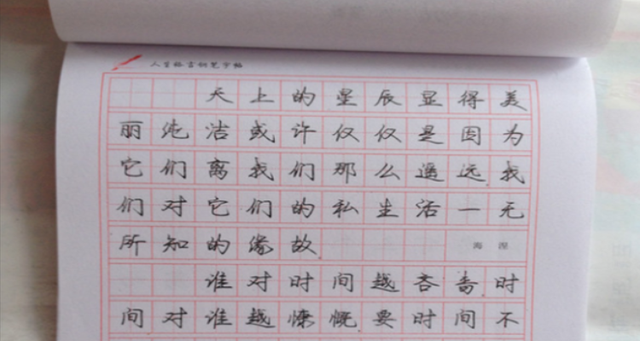 人生格言钢笔字帖
天上的星辰显得美
丽纯洁或许仅仅是因为
它们离我们那么遥远我
们对它们的私生活一无
所知的缘故 海涅
谁对时间越吝啬时
间对谁越慷慨要时间不